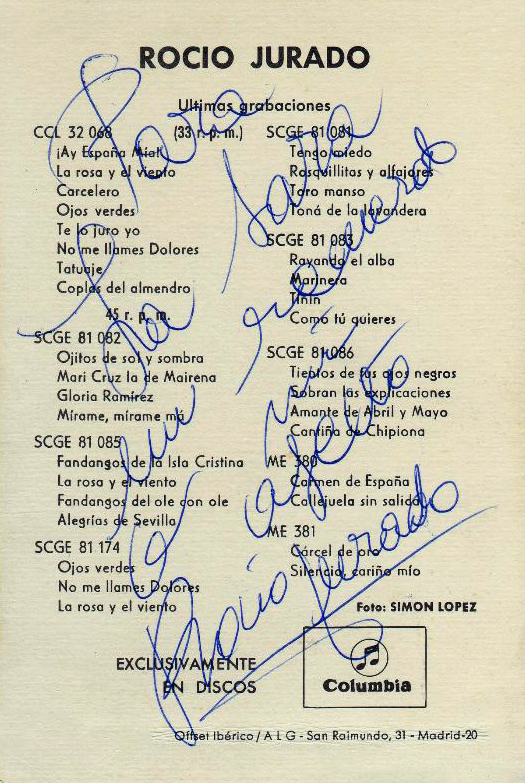 ROCIO JURADO
Ultimas grabaciones
CCL 32 068 (33 r. p. m.)
¡Ay España Mía!
La rosa y el viento
Carcelero
Ojos verdes
Te lo juro yo
No me llames Dolores
Tatuaje
Coplas del almendro
45 r. p. m.
SCGE 81 082
Ojitos de sol y sombra
Mari Cruz la de Mairena
Gloria Ramírez
Mírame, mírame má
SCGE 81 085
Fandangos de la Isla Cristina
La rosa y el viento
Fandangos del ole con ole
Alegrías de Sevilla
SCGE 81 174
Ojos verdes
No me llames Dolores
La rosa y el viento
SCGE 81 081
Tengo miedo
Rosquillitas y alfajores
Toro manso
Toná de la lavandera
SCGE 81 083
Rayando el alba
Marinera
Tinin
Como tú quieres
SCGE 81 086
Tientos de tus ojos negros
Sobran las explicaciones
Amante de Abril y Mayo
Cantiña de Chipiona
ME 380
Carmen de España
Callejuela sin salida
ME 381
Cárcel de oro
Silencio, cariño mío
Foto: SIMON LOPEZ
EXCLUSIVAMENTE
EN DISCOS
Columbia
Offset Ibérico / A L G - San Raimundo, 31 - Madrid-20
Para
recuerdo
mi
afecto
Rocio Jurado